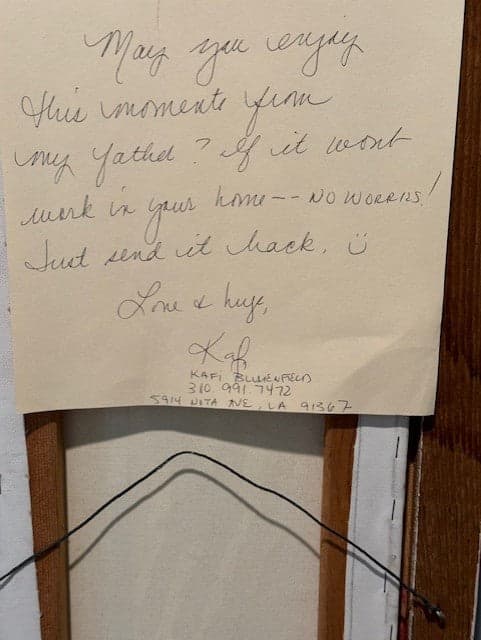 May you enjoy
this moments from
my father? If it wont
work in your home-- NO WORRIES!
Just send it back. ☺
Love & hugs,
Kafi
KAFI BLUMENFIELD
310.991.7472
5914 NITA AVE, LA 91367